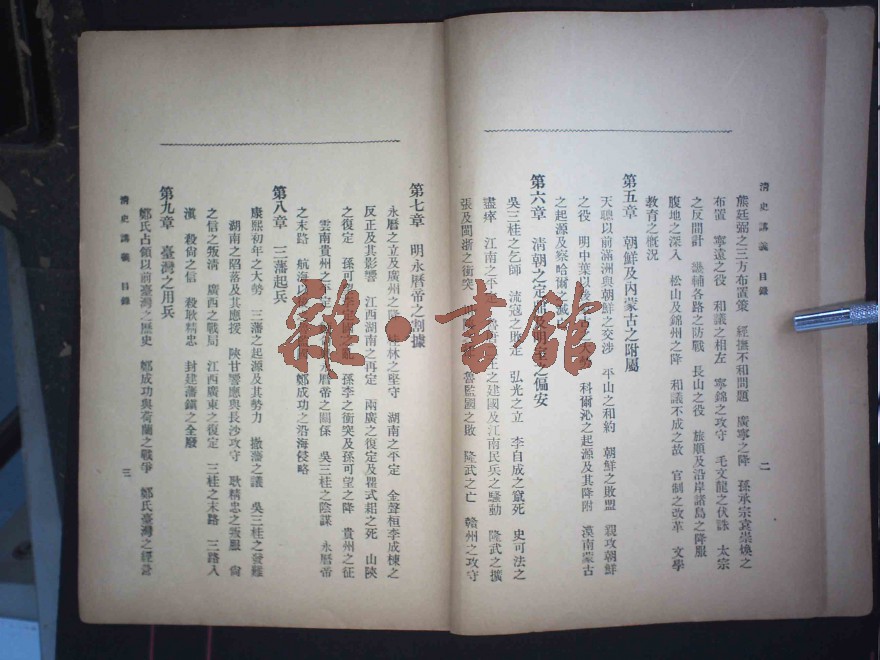 清史講義 目錄
二
熊廷弼之三方布置策 經撫不相問題 廣寧之降 孫承宗袁崇煥之
布置 寧遠之役 和議之相左 寧錦之攻守 毛文龍之伏誅 太宗
之反間計 畿輔各路之防戰 長山之役 旅順及沿岸諸島之降服
腹地之深入 松山及錦州之降 和議不成之故 官制之改革 文學
教育之概況
第五章 朝鮮及內蒙古之附屬
天聰以前滿洲與朝鮮之交涉 平山之相約 朝鮮之敗盟 親攻朝鮮
之役 明中葉以 科爾沁之起源及其降附 漠南蒙古
之起源及察哈爾之
第六章 清朝之定 之偏安
吳三桂之乞師 流寇之敗定 弘光之立 李自成之竄死 史可法之
盡瘁 江南之平 之建國及江南民兵之騷動 隆武之擴
張及閩浙之衝突 魯監國之敗 隆武之亡 贛州之攻守
第七章 明永曆帝之割據
永曆帝之立及廣州之 桂林之堅守 湖南之平定 金聲桓李成棟之
反正及其影響 江西湖南之再定 兩廣之復定及瞿式耜之死 山陝
之復定 孫可 孫李之衝突及孫可望之降 貴州之征
雲南貴州之平定 永曆帝之關係 吳三桂之陰謀 永曆帝
之末路 航海 鄭成功之沿海侵略
第八章 三藩起兵
康熙初年之大勢 三藩之起源及其勢力 撤藩之議 吳三桂之發難
湖南之陷落及其應援 陝甘響應與長沙攻守 耿精忠之叛服 尙
之信之叛清 廣西之戰局 江西廣東之復定 三桂之末路 三路入
滇 殺尙之信 殺耿精忠 封建藩鎭之全廢
第九章 臺灣之用兵
鄭氏占領以前臺灣之歷史 鄭成功與荷蘭之戰爭 鄭氏臺灣之經營
清史講義 目錄
三
雜·書館